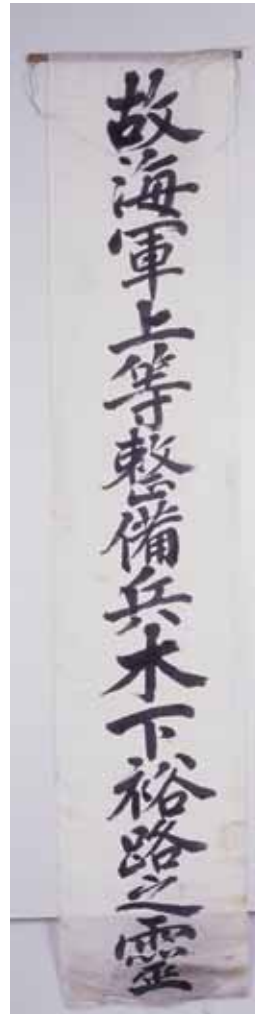 故海軍上等整備兵木下裕路之靈